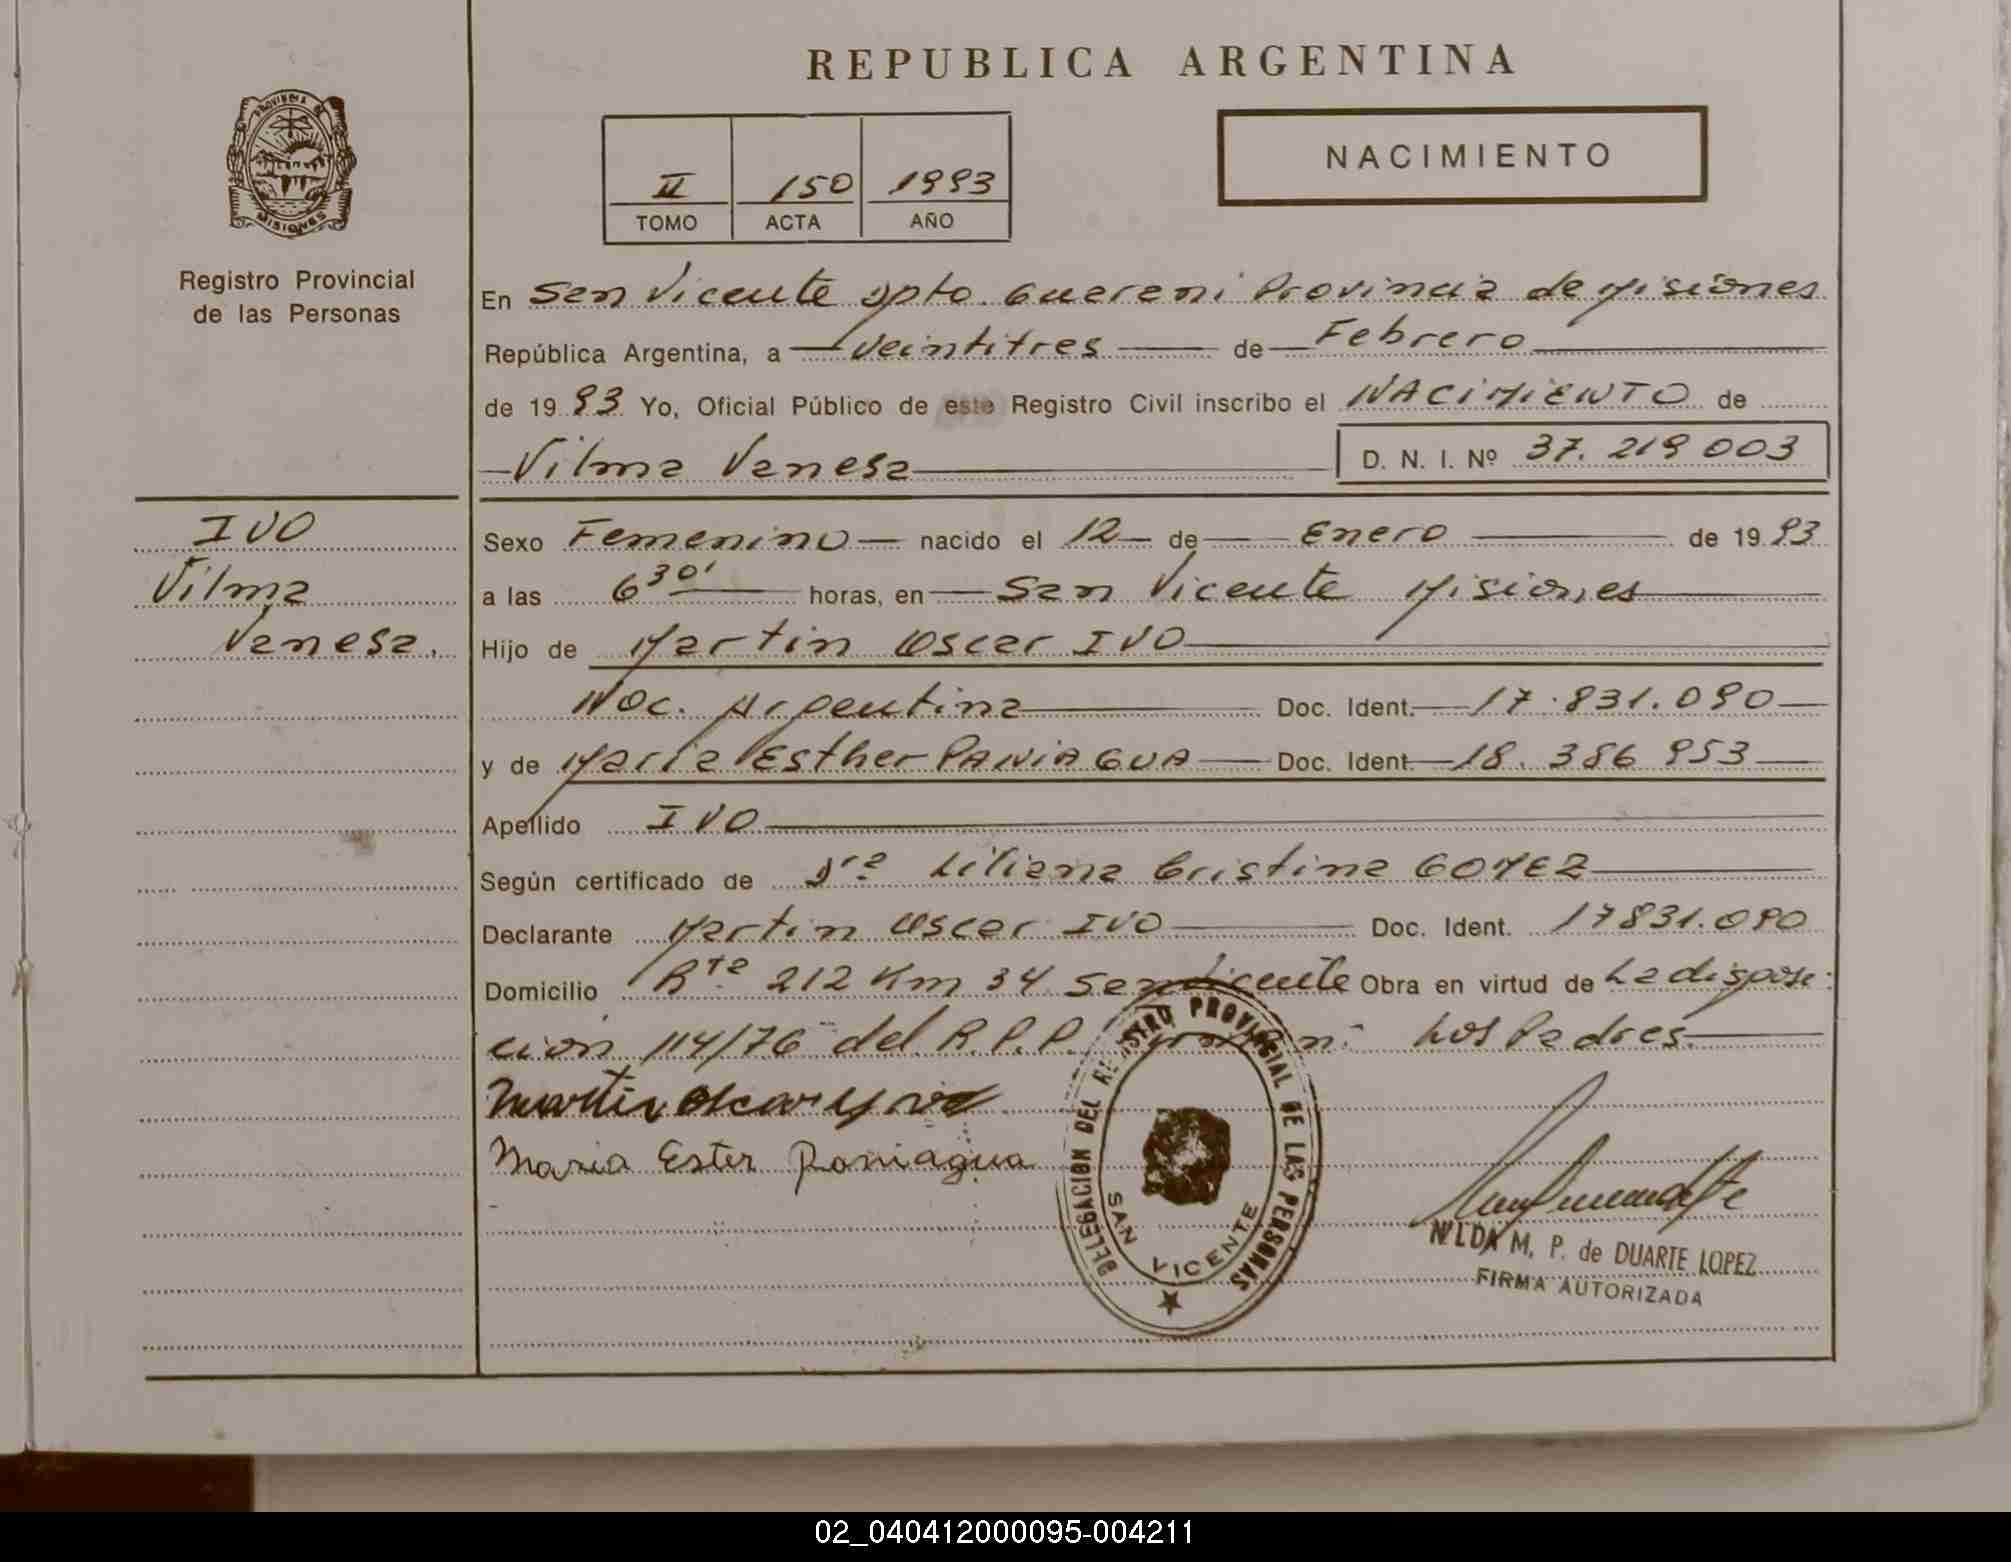 REPUBLICA ARGENTINA
PROVINCIA DE
MISIONES
NACIMIENTO
II 150 1993
TOMO ACTA AÑO
Registro Provincial
de las Personas
En San Vicente Dpto. Guarani Provincia de Misiones
República Argentina, a Veintitres de Febrero
de 1993 Yo, Oficial Público de este Registro Civil inscribo el NACIMIENTO de
Vilma Vanesa D. N. I. Nº 37.219003
IVO
Vilma
Vanesa.
Sexo Femenino nacido el 12 de Enero de 1993
a las 6 30' horas, en San Vicente Misiones
Hijo de Martin Oscar IVO
Nac. Argentina Doc. Ident. 17.831.090
y de Maria Esther PANIAGUA Doc. Ident. 18.386953
Apellido IVO
Según certificado de Dra Liliana Cristina GOMEZ
Declarante Martin Oscar IVO Doc. Ident. 17831.090
Domicilio Rta. 212 Km 34 San Vicente Obra en virtud de La disposi
ción 114/76 del R.P.P. Los Padres
Martin Oscar
Maria Ester Paniagua
DELEGACION DEL REGISTRO PROVINCIAL DE LAS PERSONAS
SAN VICENTE
NILDA M. P. de DUARTE LOPEZ
FIRMA AUTORIZADA
02_040412000095-004211